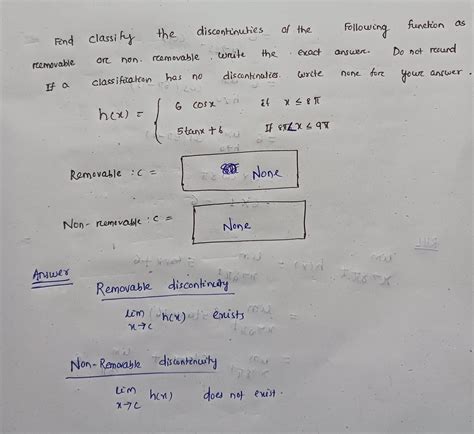 Find classify the discontinuties of the Following function as
removable or non. removable, write the exact answer. Do not round
If a classification has no discontinuties. write none fore your answer.
h(x) = { 6 cosx if x ≤ 8π
5tanx + 6 If 8π < x ≤ 9π
Removable : c = None
Non-removable : c = None
Answer
Removable discontinuity
lim x→c h(x) exists
Non-Removable discontinuity
lim x→c h(x) does not exist.